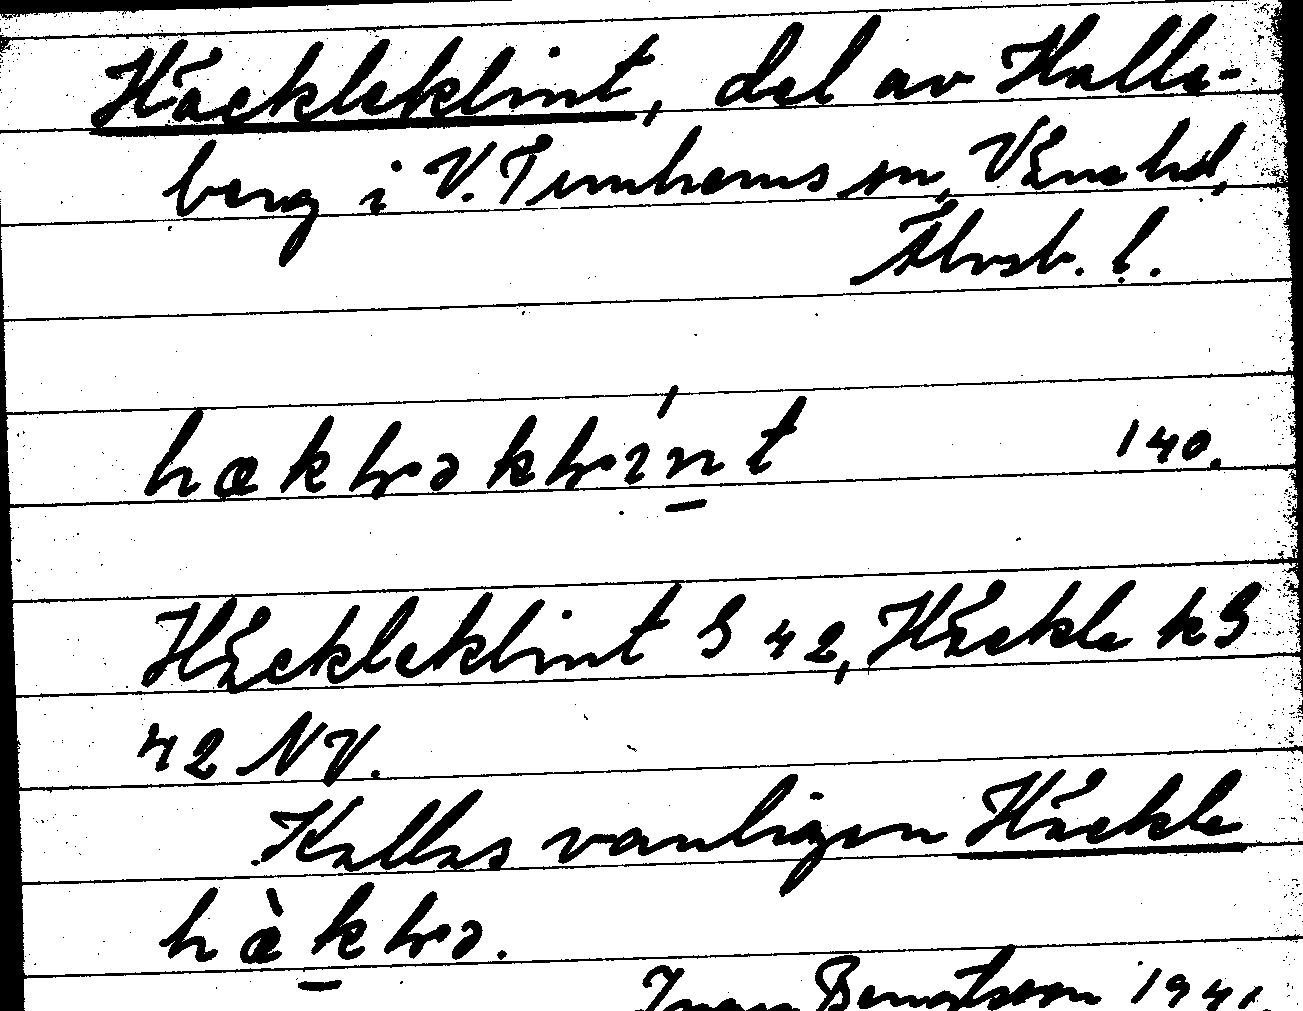 Häckleklint, del av Halle-
berg i V. Tunhems sn, Väne hd,
Älvsb. l.
hækləklínt 140.
Häckleklint G 42, Häckle kG
42 NV.
Kallas vanligen Häckle
hæ̀klə.
Ivan Bengtsson 1941.